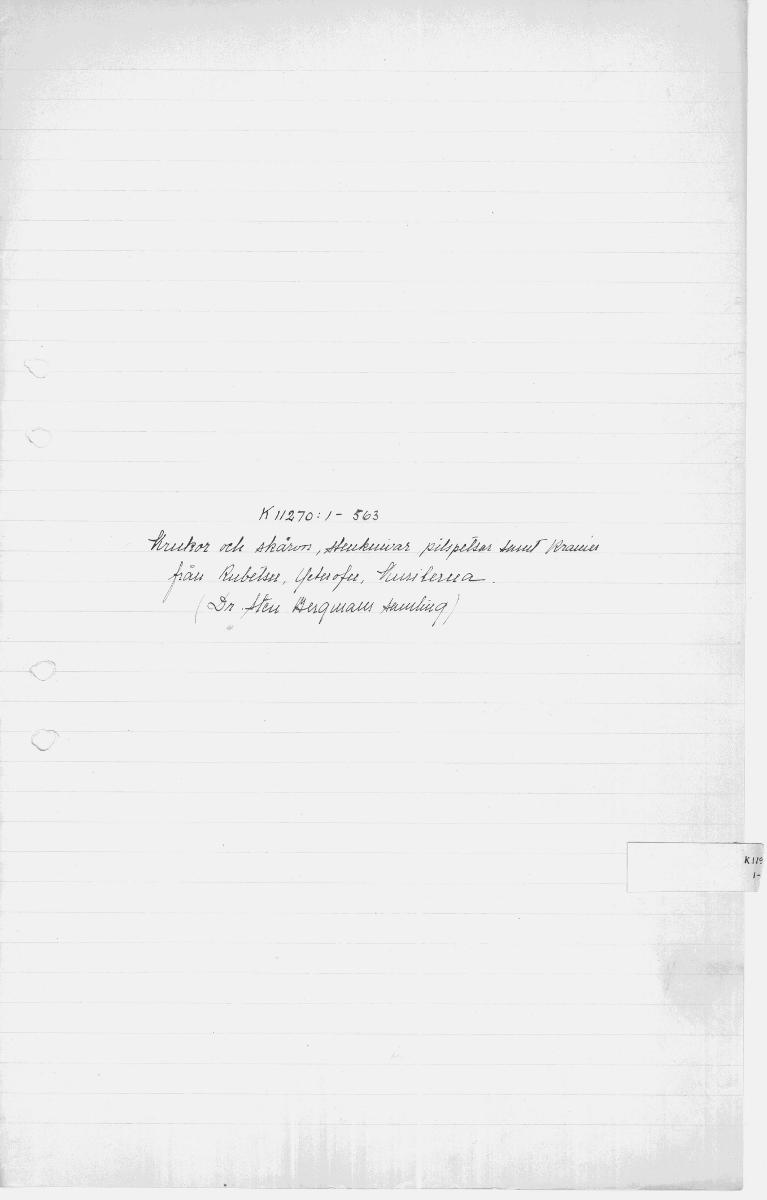 K 11270:1 - 563
Krukor och skärvor, stenknivar pilspetsar samt kranier
från Rubetsu, Yetorofu, Kurilerna.
(Dr. Sten Bergmans samling)
K 119
1-